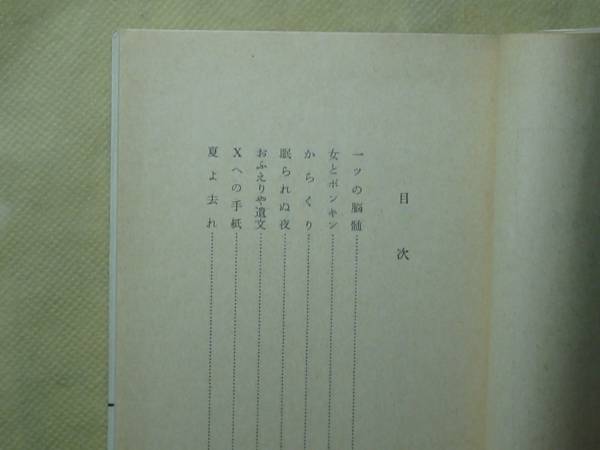 目次
一ツの脳髄
女とポンキン
からくり
眠られぬ夜
おふえりや遺文
Xへの手紙
夏よ去れ